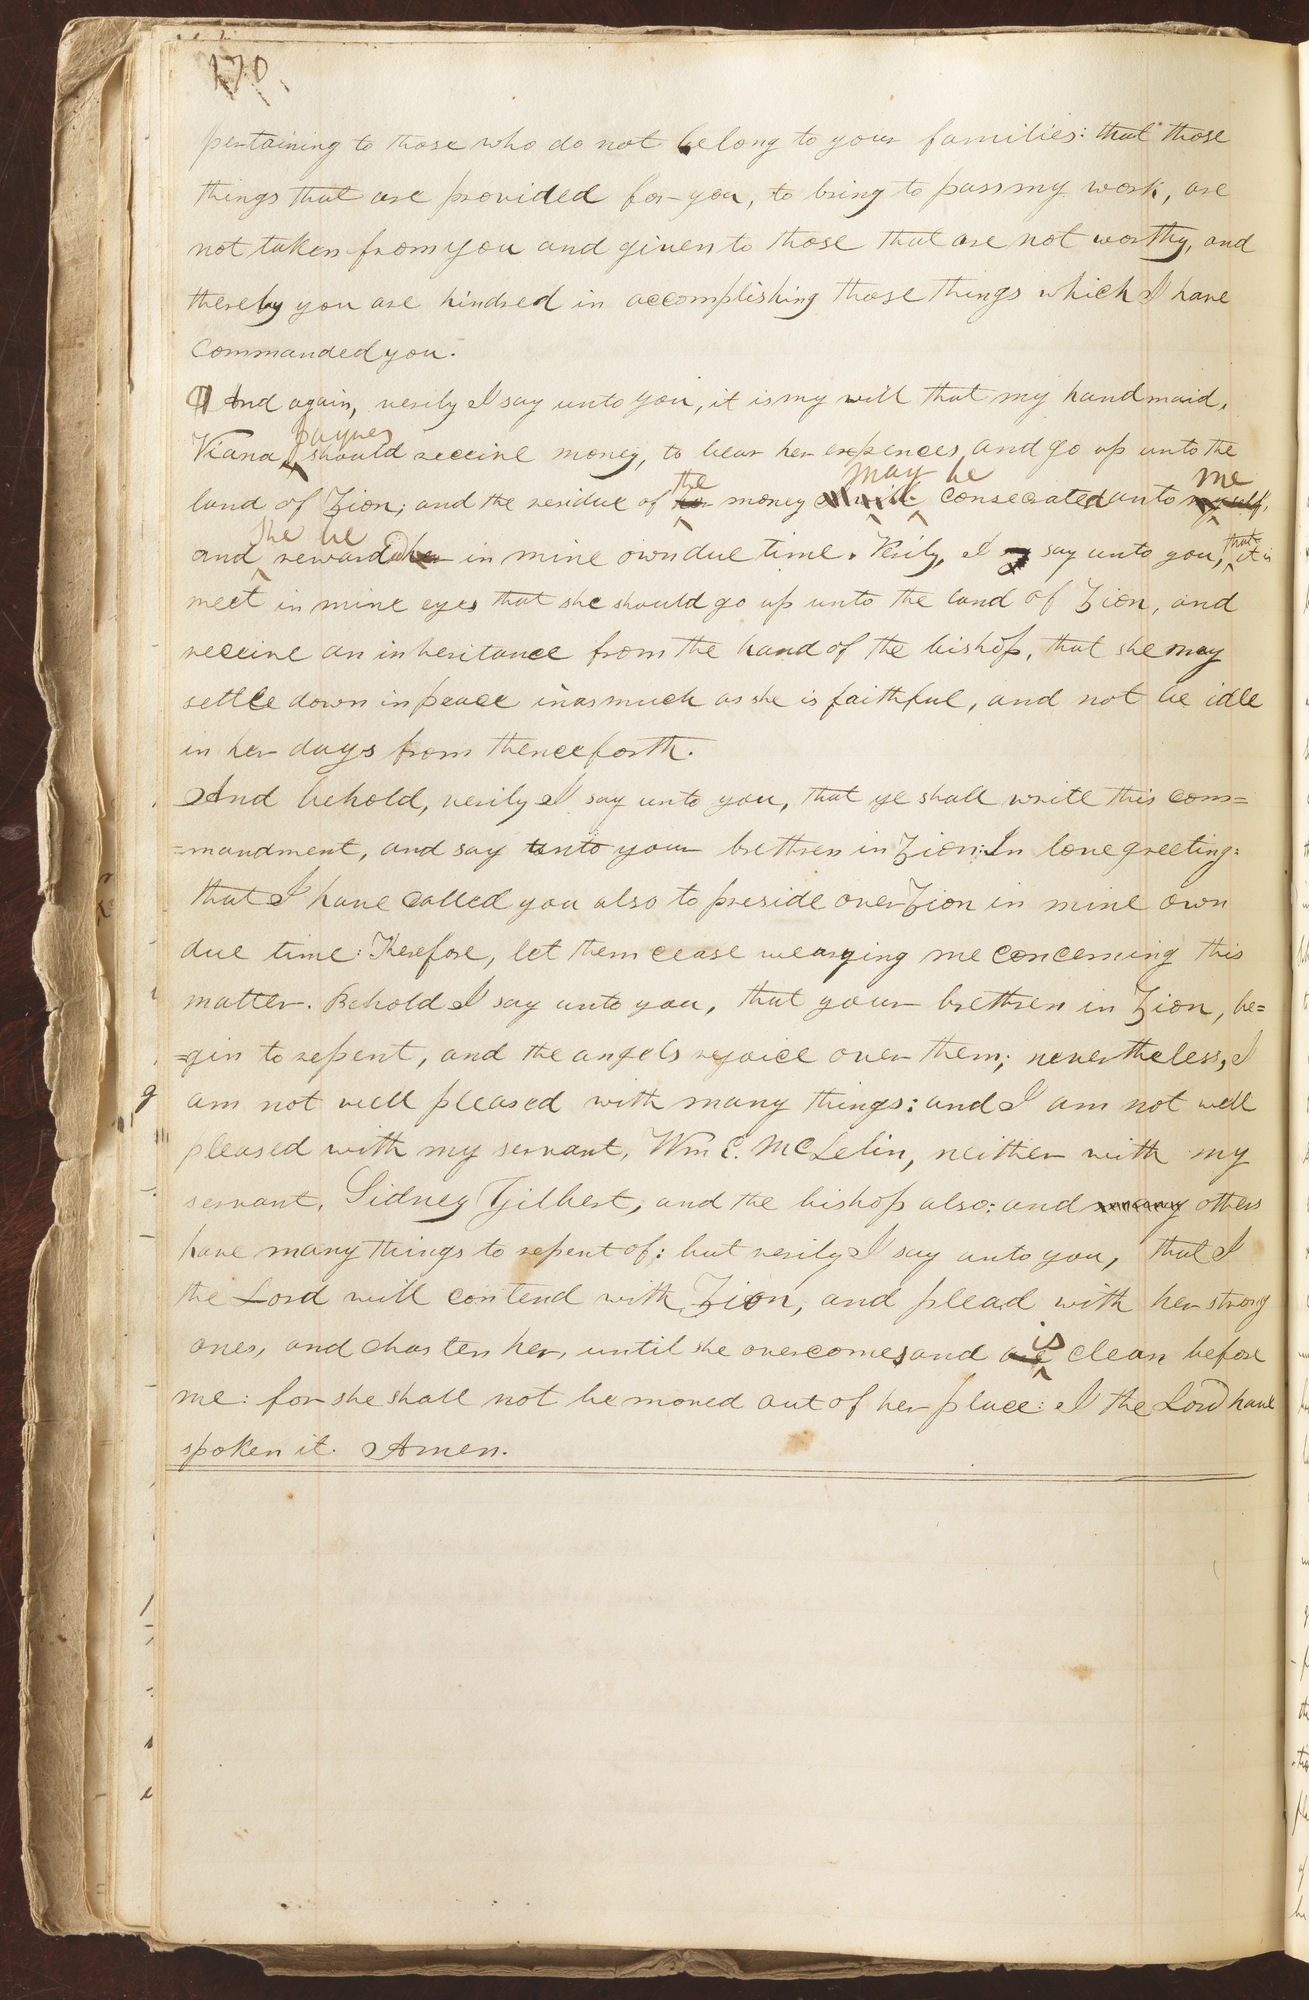 170
pertaining to those who do not belong to your families: that those
things that are provided for you, to bring to pass my work, are
not taken from you and given to those that are not worthy, and
thereby you are hindred in accomplishing those things which I have
commanded you.
¶ And again, verily I say unto you, it is my will that my handmaid,
Jaques
Viana, should receive money, to bear her expences, and go up unto the
the may be me
land of Zion; and the residue of money consecrated unto myself,
she be that
and reward her in mine own due time. Verily, I say unto you, it is
meet in mine eyes that she should go up unto the land of Zion, and
receive an inheritance from the hand of the bishop, that she may
settle down in peace inasmuch as she is faithful, and not be idle
in her days from thenceforth.
And behold, verily I say unto you, that ye shall write this com=
=mandment, and say unto your brethren in Zion: In love greeting:
that I have called you also to preside over Zion in mine own
due time: Therefore, let them cease wearying me concerning this
matter. Behold I say unto you, that your brethren in Zion, be=
=gin to repent, and the angels rejoice over them; nevertheless, I
am not well pleased with many things: and I am not well
pleased with my servant, Wm E. McLelin, neither with my
servant, Sidney Gilbert, and the bishop also: and others
have many things to repent of: but verily I say unto you, that I
the Lord will contend with Zion, and plead with her strong
is
ones, and chasten her, until she overcomes and are clean before
me: for she shall not be moved out of her place: I the Lord have
spoken it. Amen.